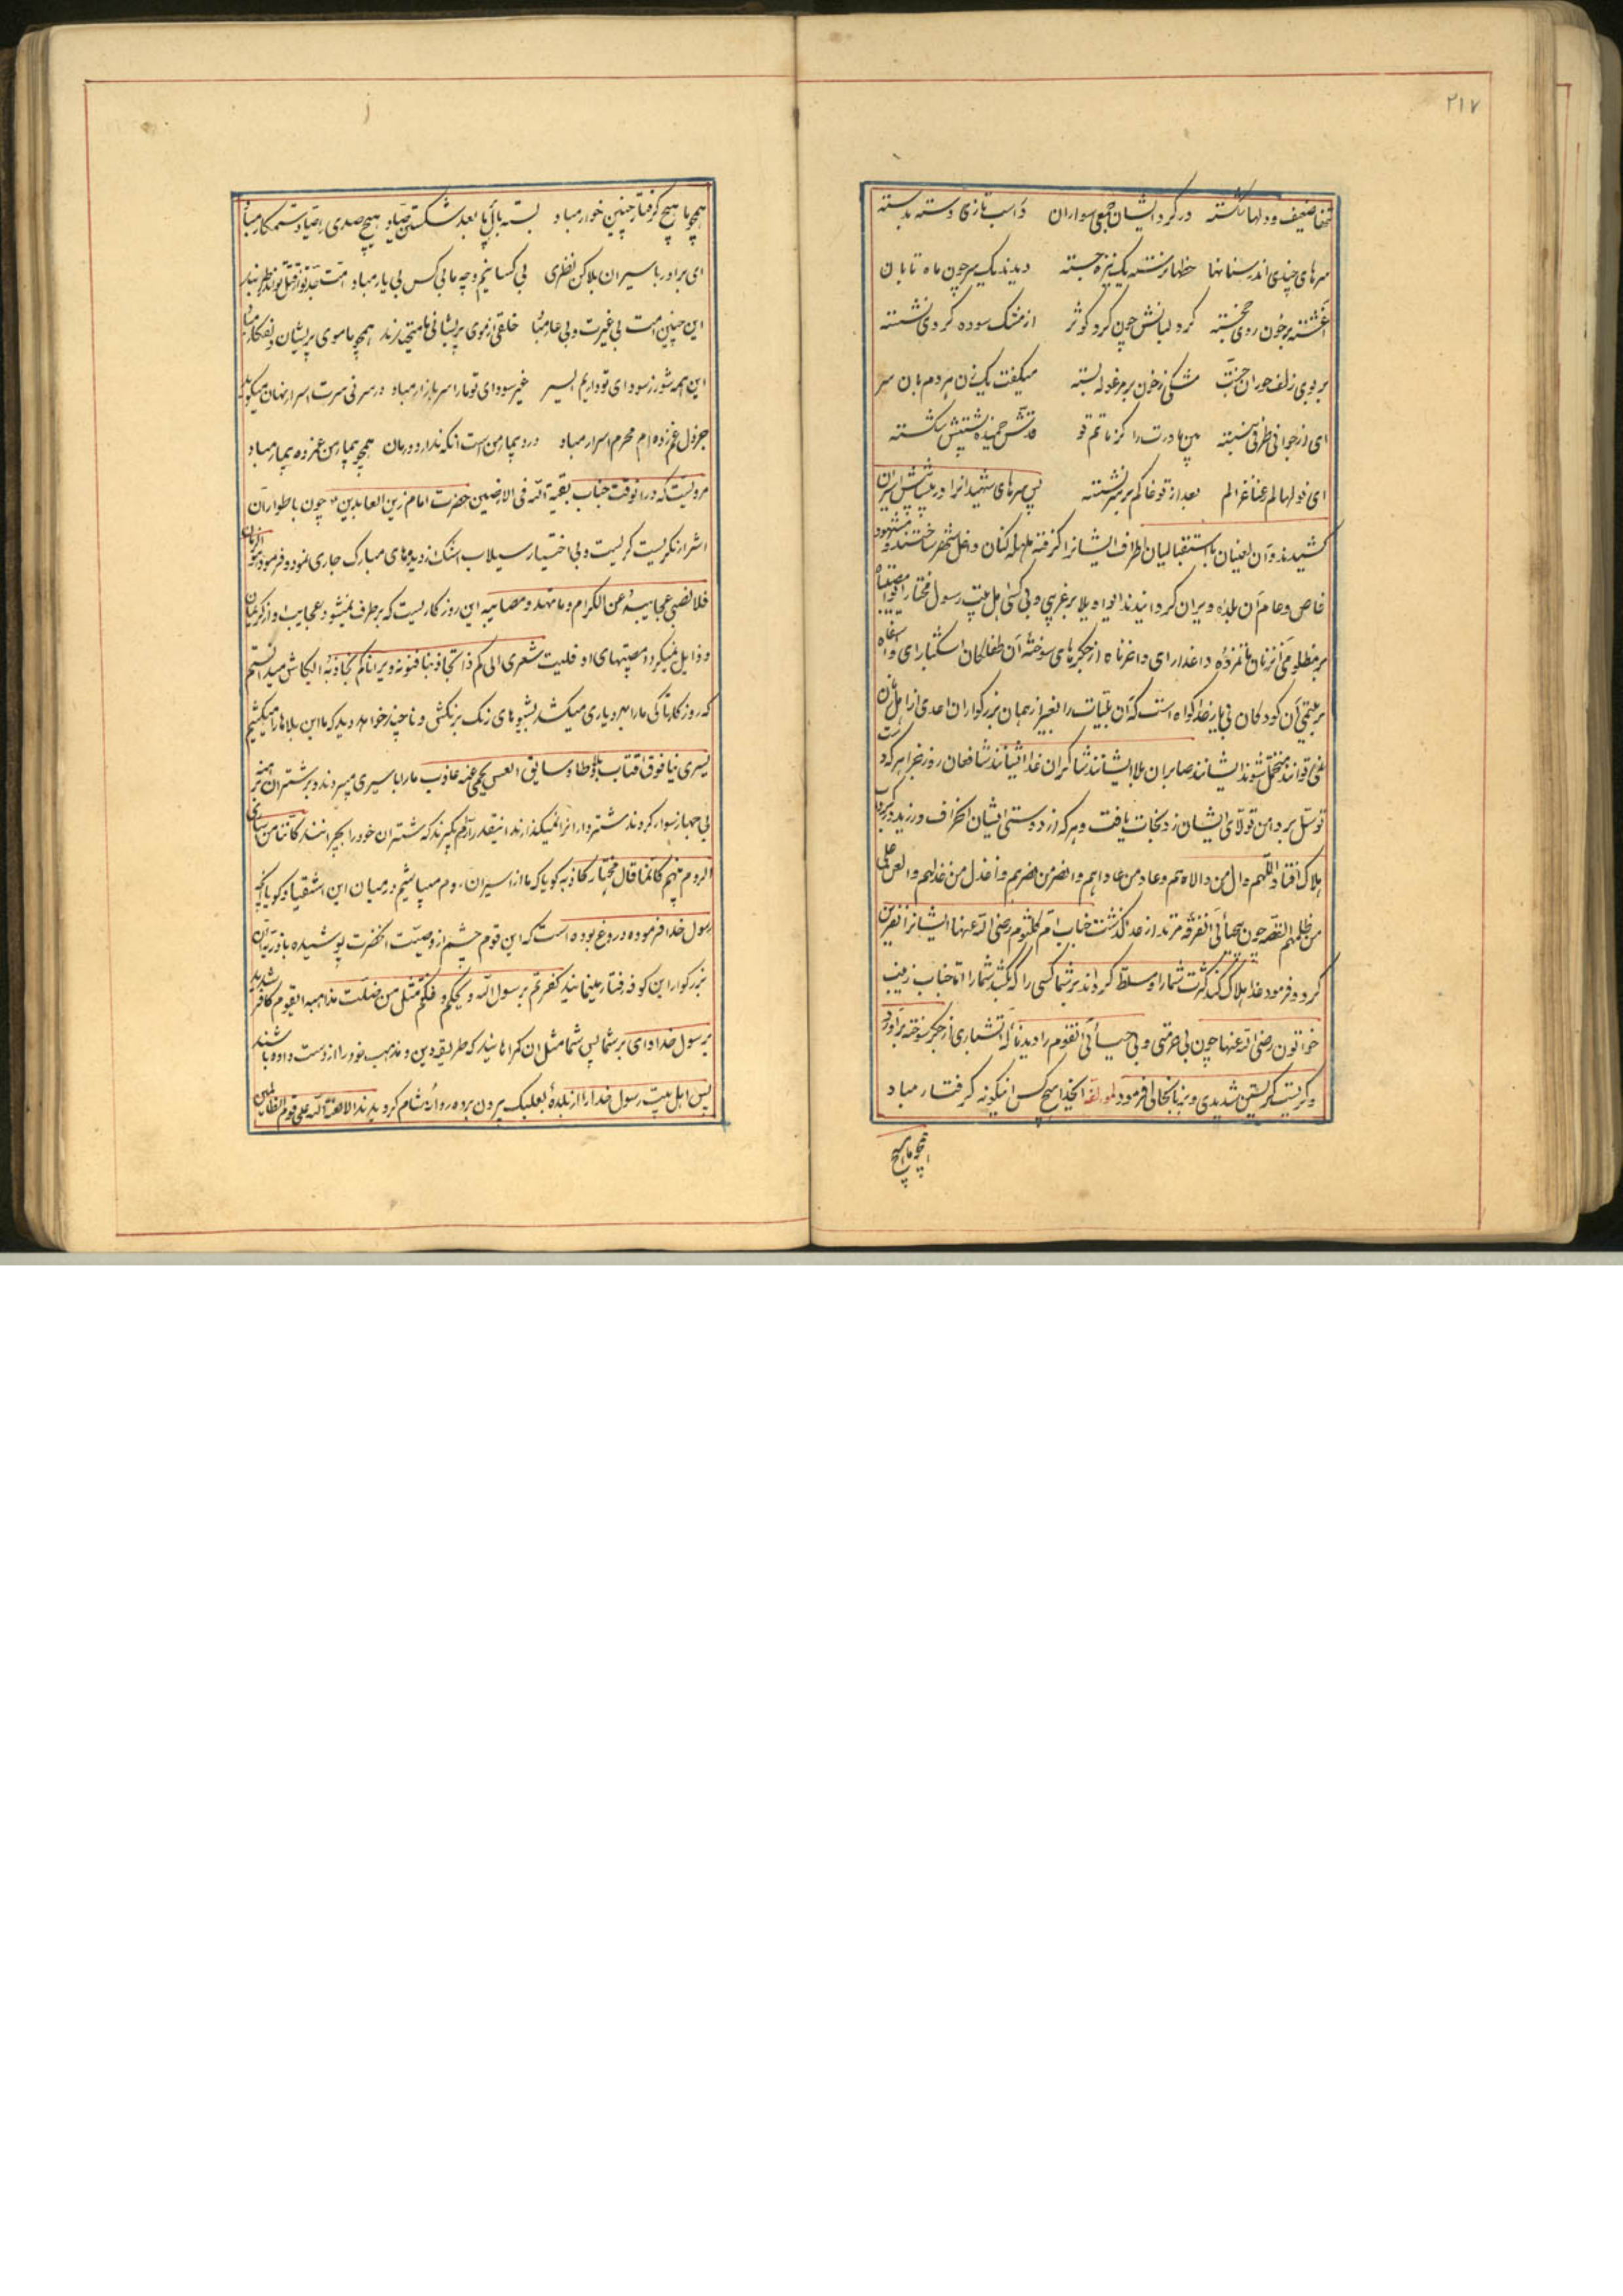 ۲۱۷
ضعیف و دلها شکسته در گرد ایشان جمعی سواران در اسب تازی دسته بدسته
سرهای چندی اندر سنانها خطها نوشته یک نیزه جسته دیدند یک سر چون ماه تابان
آغشته بر خون روی خجسته گرد لبانش چون گرد کوثر از مشک سوده گردی نشسته
بر بوی زلف حوران جنت مشکی ز خون بر مرغوله بسته میگفت یک زن هر دم بان سر
ای از جوانی طرفی نبسته بین مادرت را کز ماتم تو قدش خمیده پشتش شکسته
ای نونهالم رعنا غزالم بعد از تو خاکم بر سر نشسته پس سرهای شهیدانرا در پیشاپیش اسیران
کشیدند و آن لعینان باستقبالیان اطراف ایشانرا گرفته هلهله کنان داخل شهر ساختند و مشهود
خاص و عام آن بلده ویران گردانیدند ای واویلا بر غریبی و بی کسی اهل بیت رسول مختار
بر مظلومی آنزنان ماتمزده داغدار ای واغربتاه از جگرهای سوخته آن طفلکان اشکبار ای وا
بر یتیمی آن کودکان بی یار خدا گواه است که آن بلیات را بغیر از همان بزرگواران احدی از اهل
نمی توانند متحمل شوند ایشانند صابران بلا ایشانند شاکران خدا ایشانند شافعان روز جزا هر که د
توسل بر دامن تولای ایشان زد نجات یافت و هر که از دوستی ایشان انحراف ورزید در
هلاک افتاد اللهم وال من والاهم و عاد من عاداهم وانصر من نصرهم واخذل من خذلهم والعن علی
من ظلمهم القصه چون بیحیائی آنفرقه مرتد از حد گذشت جناب ام کلثوم رضی الله عنها ایشانرا نفرین
کرد و فرمود خدا هلاک کند کثرت شما را و مسلط گرداند بر شما کسی را که بکشد شما را اما جناب زینب
خواتون رضی الله عنها چون بی حرمتی و بی حیائی آنقوم را دید ناله آتشباری از جگر سوخته برآورد
و گریست گریستن شدیدی و بزبانحالی فرمود لمؤلفه ایخدا هیچ کس اینگونه گرفتار مباد
همچو ما هیچ
همچو ما هیچ گرفتار چنین خوار مباد بسته بال بعد شکستن صیاد هیچ صیدی را صیاد ستمکار مباد
ای برادر باسیران بلا کن نظری بی کسانیم و چو ما بی کس بی یار مباد امت جد تو از قتل تو
این چنین امت بی غیرت و بی عار مباد خلقی از موی پریشانی ما میخندند همچو ما موی پریشان دل افکار مباد
این همه شور ز سودای تو داریم بسر غیر سودای تو ما را سر بازار مباد در سر نی سرت اسرار نهان میگوید
جز دل غمزده ام محرم اسرار مباد درد بیمار من است آنکه ندارد درمان همچو بیمار من غمزده بیمار مباد
مرویست که در آنوقت جناب بقیة الله فی الارضین حضرت امام زین العابدین ع چون باطوار آن
اشرار نگریست گریست و بی اختیار سیلاب اشک از دیدهای مبارک جاری نمود و فرمود هو الزمان
فلا تفنی عجایبه عن الکرام و ما تهدء مصایبه این روزگاریست که برطرف نمیشود عجایب او از کریمان
و زایل نمیگردد مصیبتهای او فلیت شعری الی کم ذا تجاذبنا فنونه و یرانا کم نجاذبه ایکاش میدانستم
که روزگار تا کی ما را بهر دیاری میکشد بشیوهای رنگ برنگش و تا چند خواهد دید که ما این بلاها را میکشیم
یسری بنا فوق اقتاب بلا وطاء و سایق العیس یحمی عنه عاذب ما را باسیری میبرند و بر شتران برهنه
بی جهاز سوار کردند شترداران نمیگذارند اینقدر آرام بگیرند که شتران خود را بچرانند کاننا من
الروم بینهم کانما قال مختار کاذبه گویا که ما از اسیران روم میباشیم در میان این اشقیا و گویا آنچه
رسول خدا فرموده دروغ بوده است که این قوم چشم از وصیت آنحضرت پوشیده با ذریه آن
بزرگوار این گونه رفتار مینمایند کفرتم برسول الله ویحکم فکنتم مثل من ضلت مذاهبه ایقوم کافر شدید
برسول خدا وای بر شما پس شما مثل آن گمراهانید که طریقه دین و مذهب خود را از دست داده باشند
پس اهل بیت رسول خدا را از بلده بعلبک بیرون برده روانه شام گردیدند الا لعنة الله علی قوم الظالمین